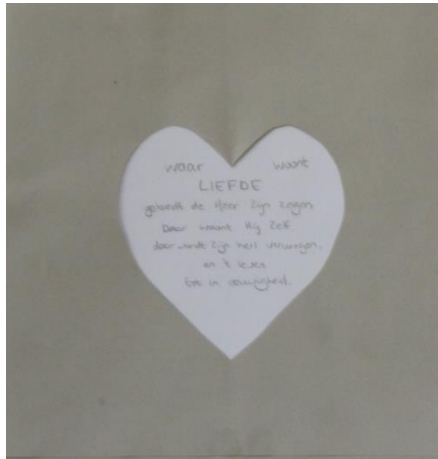 waar woont
LIEFDE
gebiedt de Heer Zijn zegen
Daar woont Hij Zelf,
daar wordt Zijn heil verkregen,
en 't leven
tot in eeuwigheid.